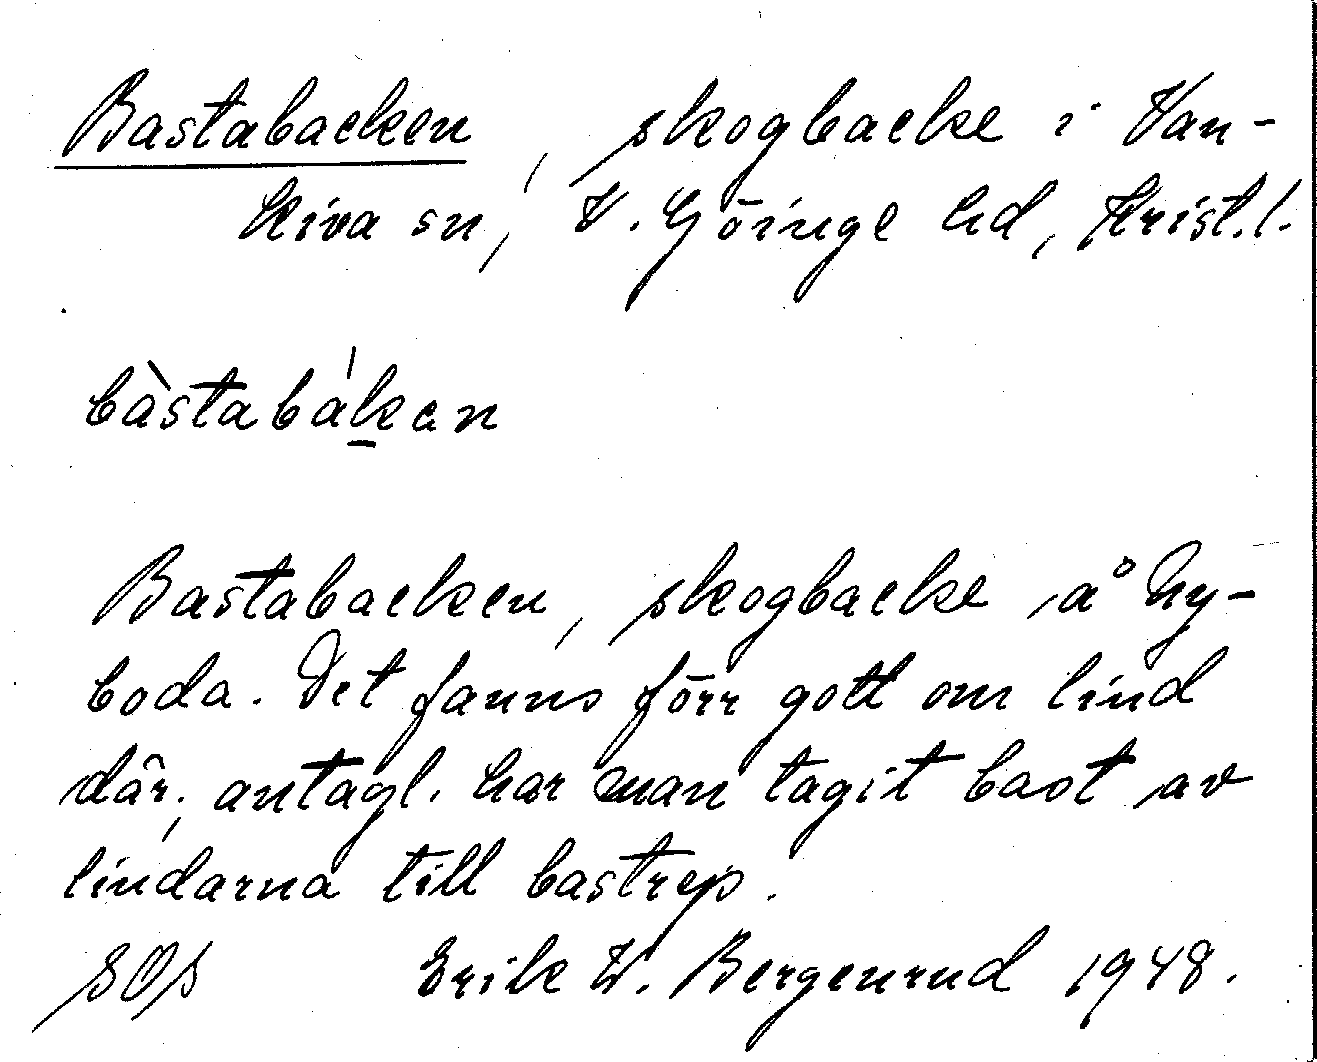 Bastabacken, skogbacke i Van-
kiva sn, V. Göinge hd, Krist. l.
bàstabák̲an
Bastabacken, skogbacke å Ny-
boda. Det fanns förr gott om lind
där; antagl. har man tagit bast av
lindarna till bastrep.
SOS Erik W. Bergenrud 1948.